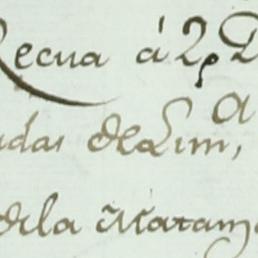 Recua á 2p D
udas de Lim,a
de la Matam